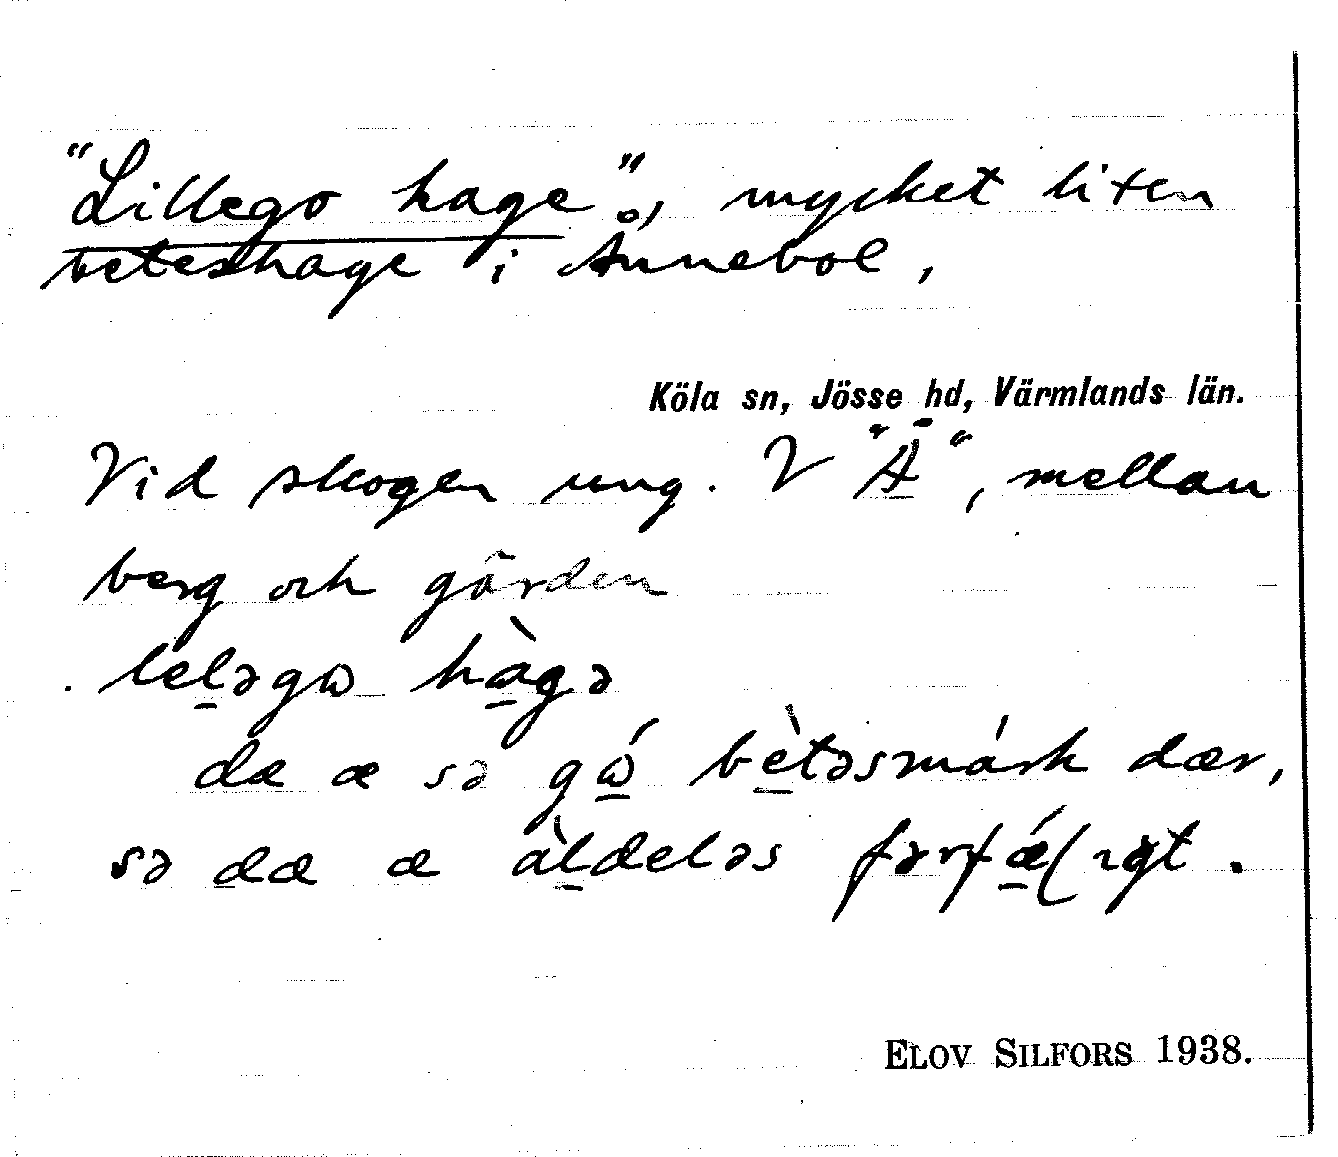 "Lillego hage", mycket liten
beteshage i Ånnebol,
Köla sn, Jösse hd, Värmlands län.
Vid skogen ung. V "Ä", mellan
berg och gården
leləgɷ hàgə
dæ æ sə gɷ́ bètəsmárk dær,
sə dæ æ àldeləs
ELOV SILFORS 1938.